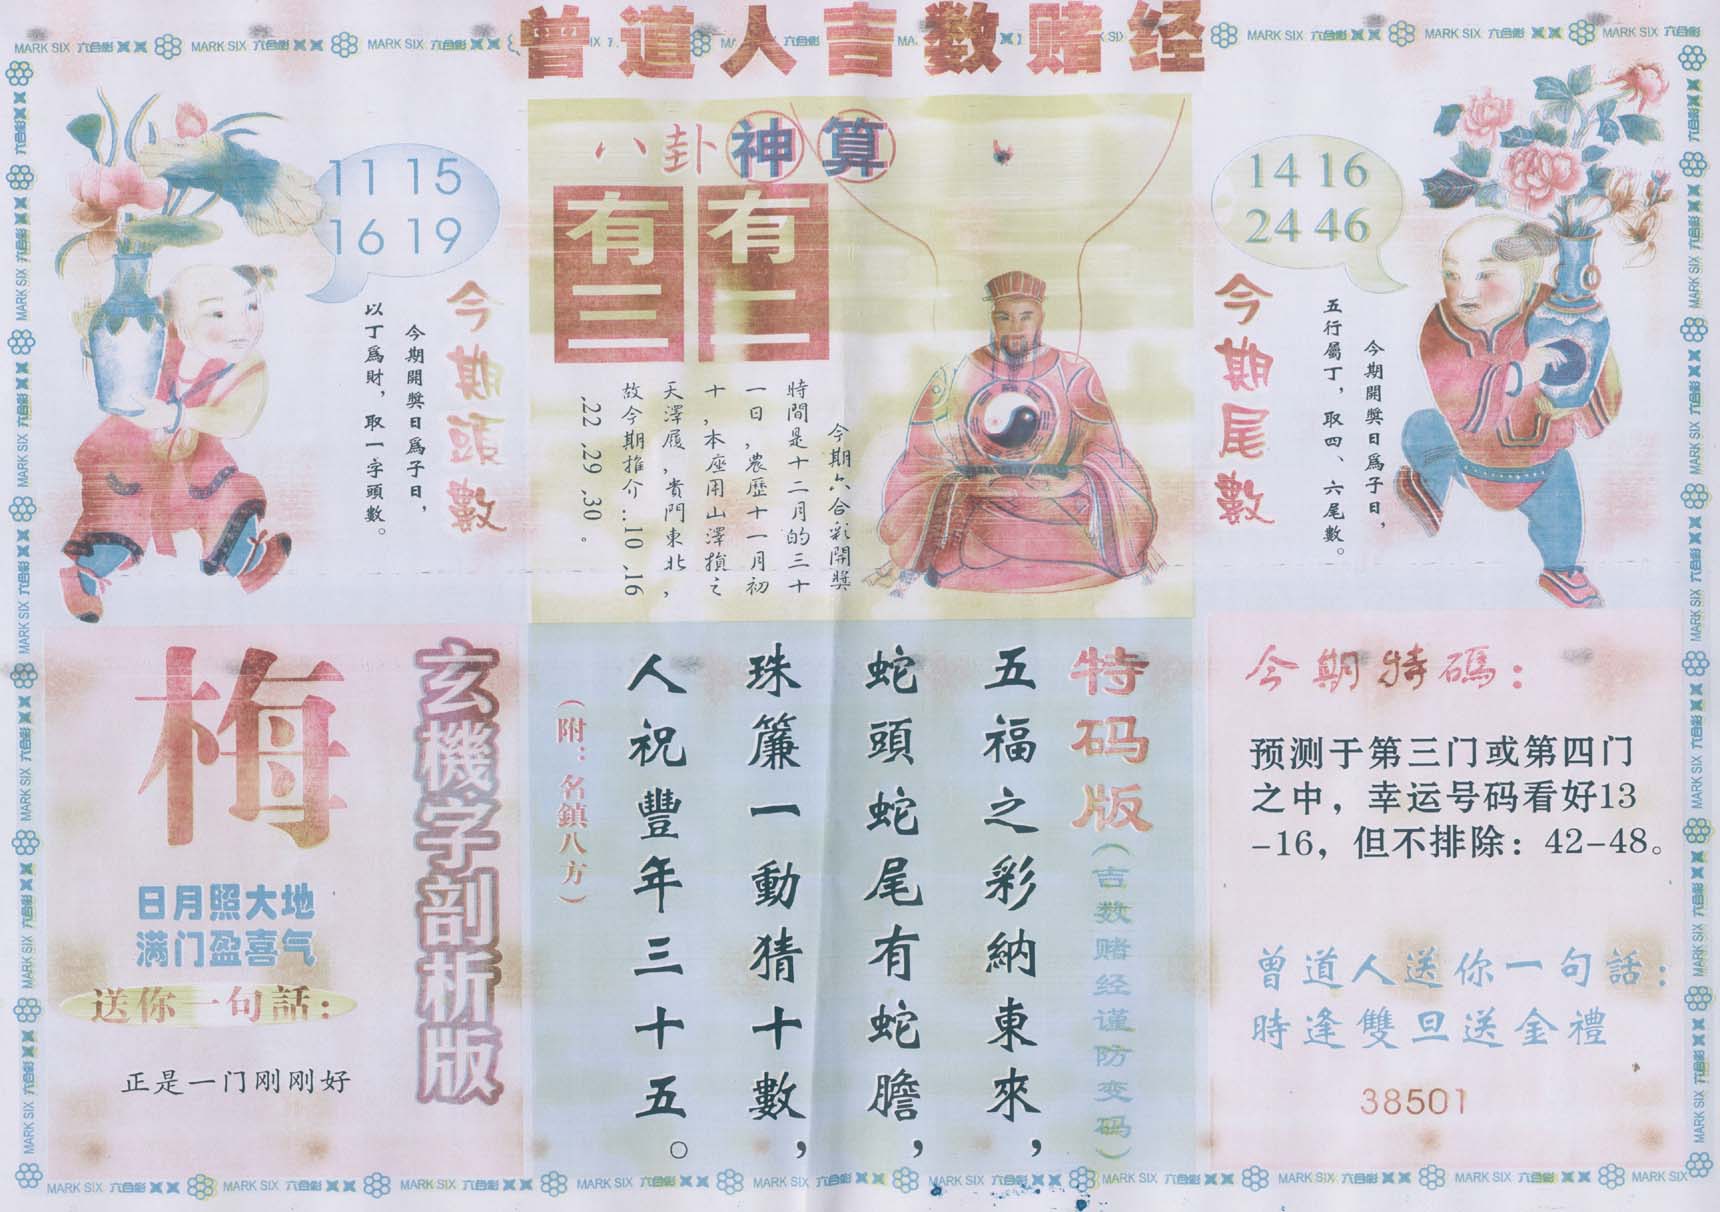 曾道人吉数赌经
MARK SIX 六合彩
八卦神算
有二
有三
今期六合彩開獎
時間是十二月的三十
一日，農歷十一月初
十，本座用山澤損之
天澤履，貴門東北，
故今期推介：.10 .16
.22 .29 .30 。
11 15
16 19
今期頭數
今期開獎日爲子日，
以丁爲財，取一字頭數。
14 16
24 46
今期尾數
今期開獎日爲子日，
五行屬丁，取四、六尾數。
玄機字剖析版
梅
日月照大地
满门盈喜气
送你一句話：
正是一门刚刚好
特码版
（吉数赌经谨防变码）
五福之彩納東來，
蛇頭蛇尾有蛇膽，
珠簾一動猜十數，
人祝豐年三十五。
（附：名鎮八方）
今期特碼：
预测于第三门或第四门
之中，幸运号码看好13
-16，但不排除：42-48。
曾道人送你一句話：
時逢雙旦送金禮
38501